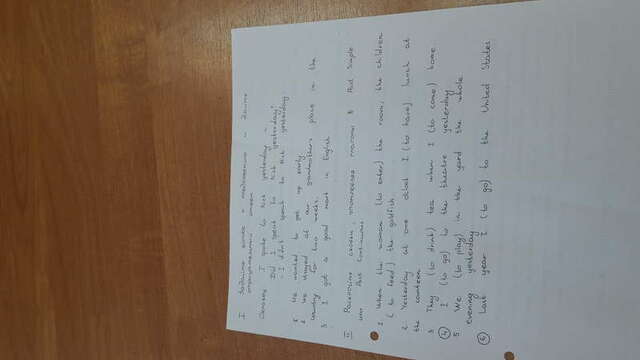 I Задайте вопрос к предложению и дайте
отрицательный ответ
Образец I spoke to Nick yesterday -
Did I speak to Nick yesterday?
- I didn't speak to Nick yesterday
1 We wanted to get up early
2 We stayed at our grandmother's place in the
country for two weeks.
3 I got a good mark in English
II Раскройте скобки, употребляя глаголы в Past Simple
или Past Continuous
1. When the woman (to enter) the room, the children
(to feed) the goldfish
2. Yesterday at one oclock I (to have) lunch at
the canteen
3 They (to drink) tea when I (to come) home
4 I (to go) to the theatre yesterday
5 We (to play) in the yard the whole
evening yesterday
6 Last year I (to go) to the United States